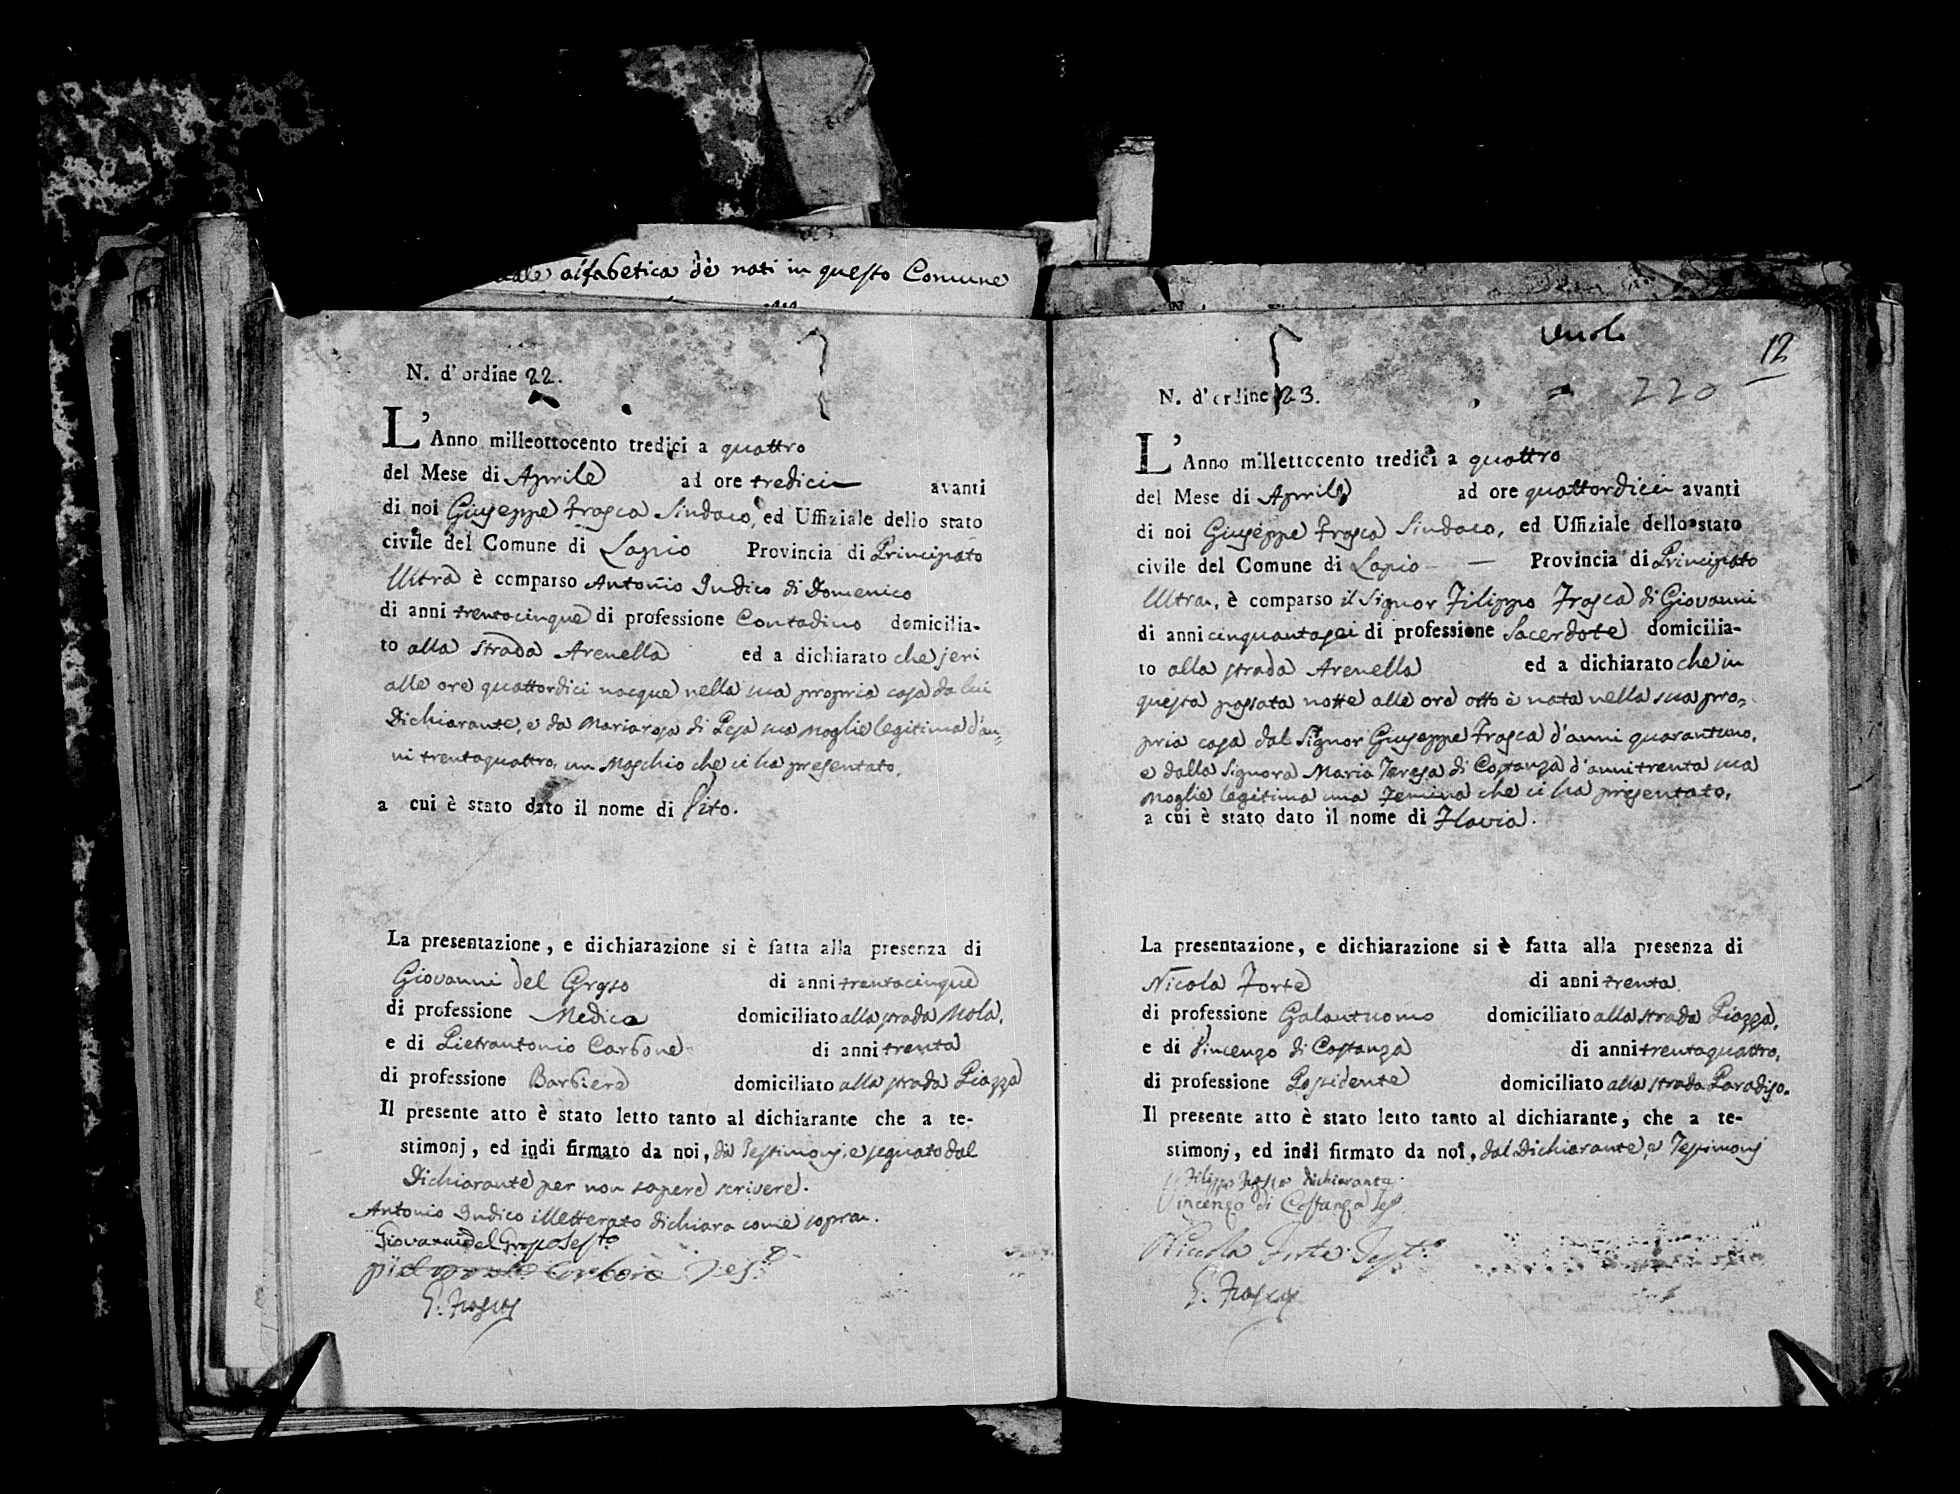 alfabetica de nati in questo Comune
N. d'ordine 22.
L'Anno milleottocento tredici a quattro
del Mese di Aprile ad ore tredici avanti
di noi Giuseppe Frasca Sindaco, ed Uffiziale dello stato
civile del Comune di Lapio Provincia di Principato
Ultra è comparso Antonio Iudico di Domenico
di anni trentacinque di professione Contadino domicilia-
to alla strada Arenella ed a dichiarato che jeri
alle ore quattordici nacque nella sua propria casa da lui
Dichiarante, e da Mariarosa di Pesa sua Moglie legitima d'an=
ni trentaquattro, un Maschio che ci ha presentato,
a cui è stato dato il nome di Vito.
La presentazione, e dichiarazione si è fatta alla presenza di
Giovanni del Grosso di anni trentacinque
di professione Medico domiciliato alla strada Mola,
e di Pietrantonio Carbone di anni trenta
di professione Barbiere domiciliato alla strada Piazza
Il presente atto è stato letto tanto al dichiarante che a te-
stimonj, ed indi firmato da noi, da Testimonj, e segnato dal
Dichiarante per non sapere scrivere.
Antonio Iudico illetterato dichiara come sopra.
Giovanni del Grosso Test.o
Carbone Tes.o
G. Frasca
12
220
N. d'ordine 23.
L'Anno milleottocento tredici a quattro
del Mese di Aprile ad ore quattordici avanti
di noi Giuseppe Frasca Sindaco, ed Uffiziale dello stato
civile del Comune di Lapio — — Provincia di Principato
Ultra, è comparso il Signor Filippo Frasca di Giovanni
di anni cinquantasei di professione Sacerdote domicilia-
to alla strada Arenella ed a dichiarato che in
questa passata notte alle ore otto è nata nella sua pro=
pria casa dal Signor Giuseppe Frasca d'anni quarantuno,
e dalla Signora Maria Teresa di Costanza d'anni trenta sua
Moglie legitima una Femina che ci ha presentato,
a cui è stato dato il nome di Flavia.
La presentazione, e dichiarazione si è fatta alla presenza di
Nicola Forte di anni trenta
di professione Galantuomo domiciliato alla strada Piazza,
e di Vincenzo di Costanza di anni trentaquattro,
di professione Possidente domiciliato alla strada Paradiso.
Il presente atto è stato letto tanto al dichiarante, che a te-
stimonj, ed indi firmato da noi, dal Dichiarante, e Testimonj
Filippo Frasca Dichiarante.
Vincenzo di Costanza Tes.
Niccola Forte Test.e
G. Frasca